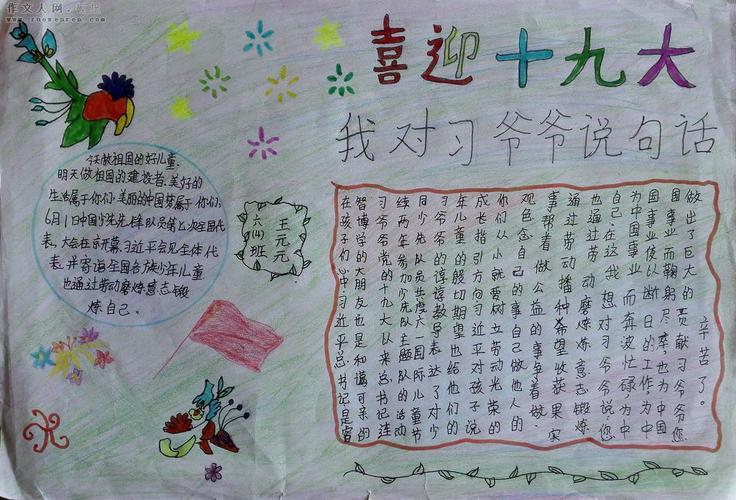 作文人网
www.zuowenren.com
喜迎十九大
我对习爷爷说句话
今天做祖国的好儿童,
明天做祖国的建设者,美好的
生活属于你们,美丽的中国梦属于你们,
6月1日中国少先先锋队员第七次全国代
表,大会在京开幕习近平会见全体代
表,并寄语全国各族少年儿童
也通过劳动磨炼意志锻
炼自己.
王元元
六(4)班
在孩子们心中习近平总书记是睿
智博学的大朋友也是和谒可亲的
习爷爷党的十九大以来总书记连
续两年参加少先队主题队的活动
同少先队员共度六一国际儿童节
习爷爷的谆谆教导表达了对少
年儿童的殷切期望也给他们的
成长指引方向习近平对孩子说
你们从小就要树立劳动光荣的
观念自己的事自己做他人的
事帮着做公益的事争着做.
通过劳动播种希望收获果实
也通过劳动磨炼意志锻炼
自己在这我想对习爷爷说,您
为中国事业而奔波忙碌,为中
国事业日的工作,为中
国事业而鞠躬尽瘁,也为中国
做出了巨大的贡献习爷爷您
辛苦了。